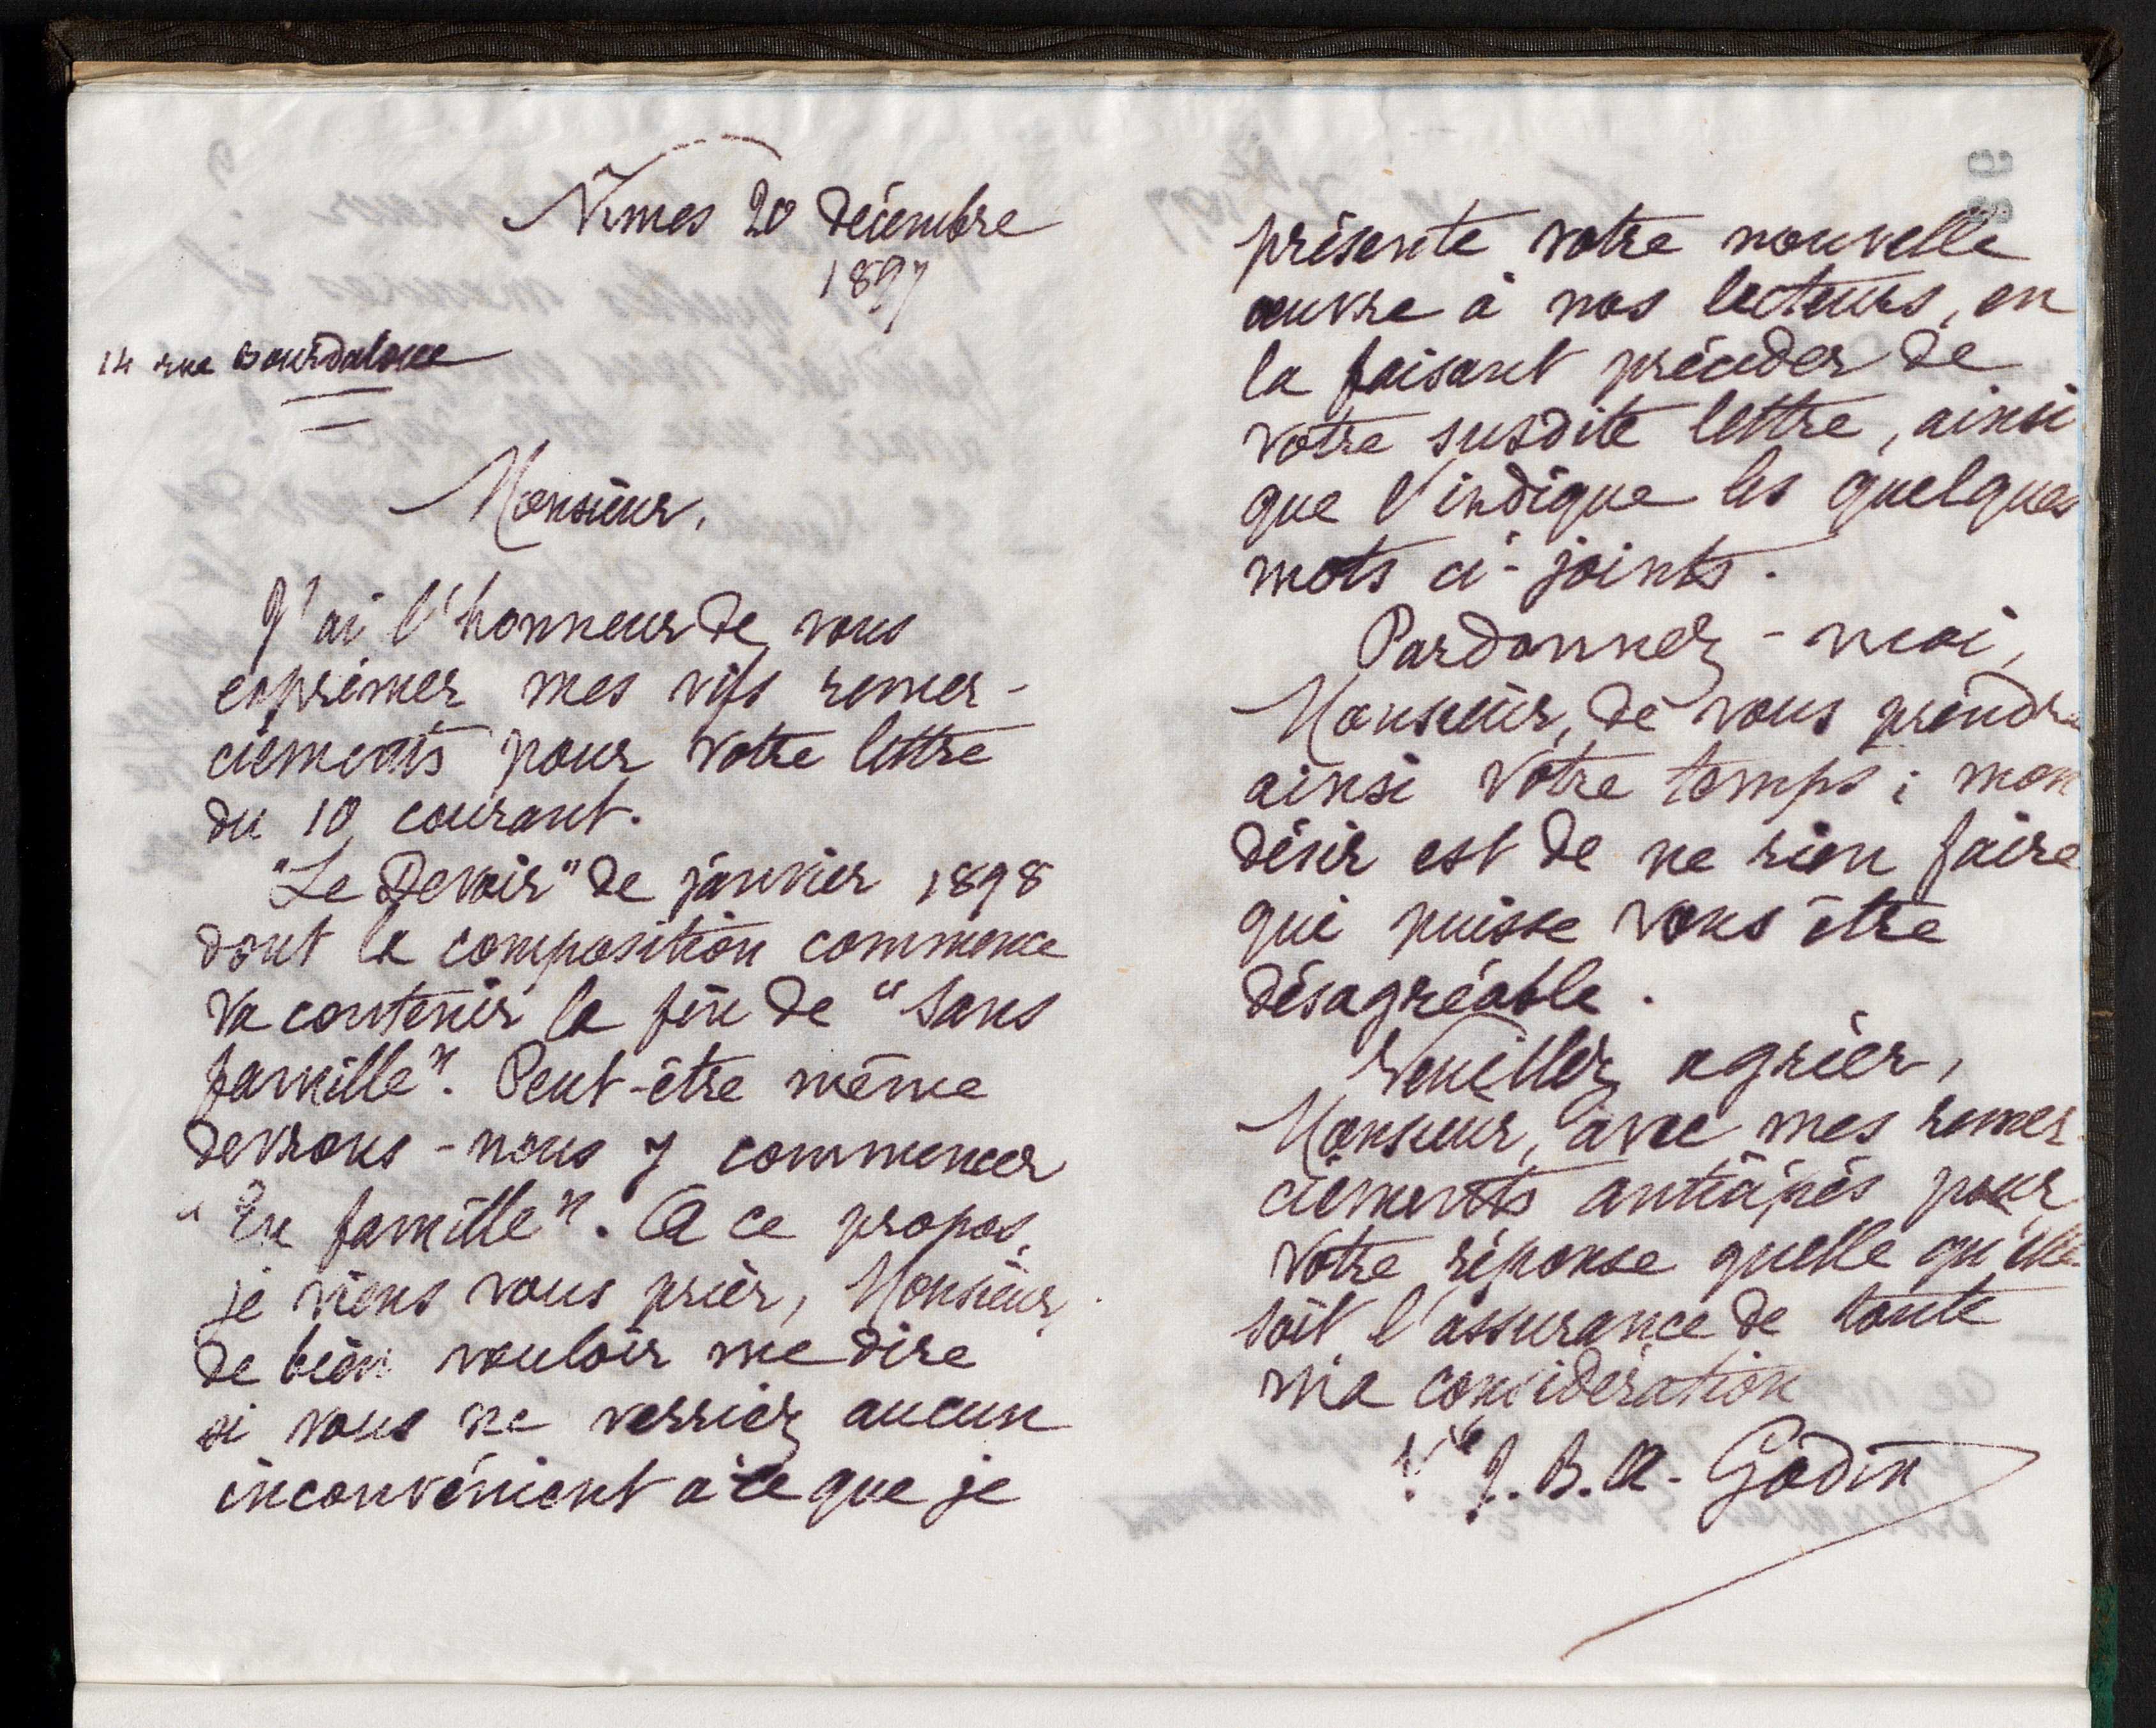 Nîmes 20 décembre
1897
14 rue Bourdaloue
Monsieur,
J'ai l'honneur de vous
exprimer mes vifs remer-
ciements pour votre lettre
du 10 courant.
"Le Devoir" de janvier 1898
dont la composition commence
va contenir la fin de "Sans
famille". Peut-être même
devrons-nous y commencer
"En famille". A ce propos,
je viens vous prier, Monsieur,
de bien vouloir me dire
si vous ne verriez aucun
inconvénient à ce que je
présente votre nouvelle
œuvre à nos lecteurs, en
la faisant précéder de
votre susdite lettre, ainsi
que l'indique les quelques
mots ci-joints.
Pardonnez-moi,
Monsieur, de vous prendre
ainsi votre temps ; mon
désir est de ne rien faire
qui puisse vous être
désagréable.
Veuillez agréer,
Monsieur, avec mes remer-
ciements anticipés pour
votre réponse quelle qu'elle
soit l'assurance de toute
ma considération
Vve J.B.A. Godin